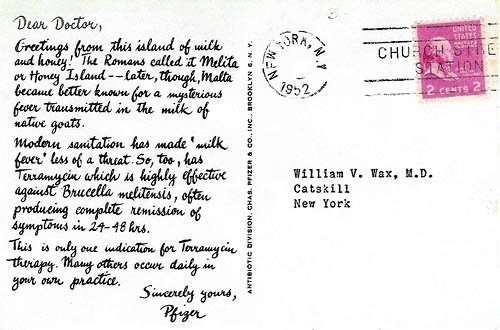 Dear Doctor,
Greetings from this island of milk
and honey! The Romans called it Melita
or Honey Island -- later, though, Malta
became better known for a mysterious
fever transmitted in the milk of
native goats.
Modern sanitation has made "milk
fever" less of a threat. So, too, has
Terramycin which is highly effective
against Brucella melitensis, often
producing complete remission of
symptoms in 24-48 hrs.
This is only one indication for Terramycin
therapy. Many others occur daily in
your own practice.
Sincerely yours,
Pfizer
ANTIBIOTIC DIVISION, CHAS. PFIZER & CO., INC., BROOKLYN 6, N. Y.
NEW YORK, N.Y.
1952
CHURCH STRE
STATION
UNITED
STATES
POSTAGE
2 CENTS 2
William V. Wax, M.D.
Catskill
New York